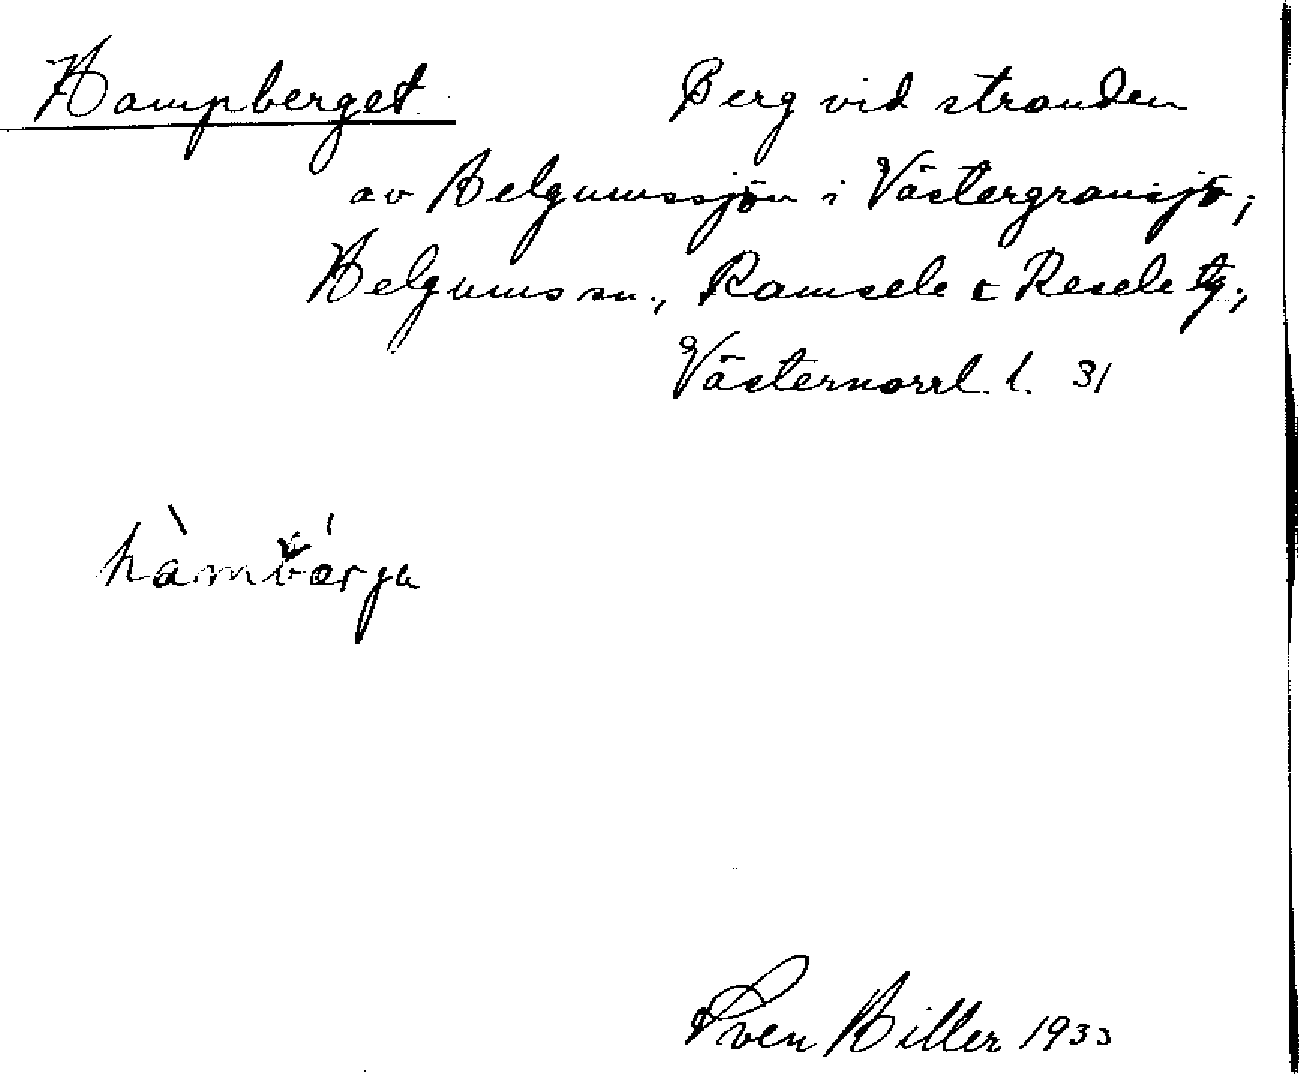 Hampberget Berg vid stranden
av Helgumssjön i Västergransjö,
Helgums sn., Ramsele & Resele tg.,
Västernorrl. l. 31
Sven Hiller 1933